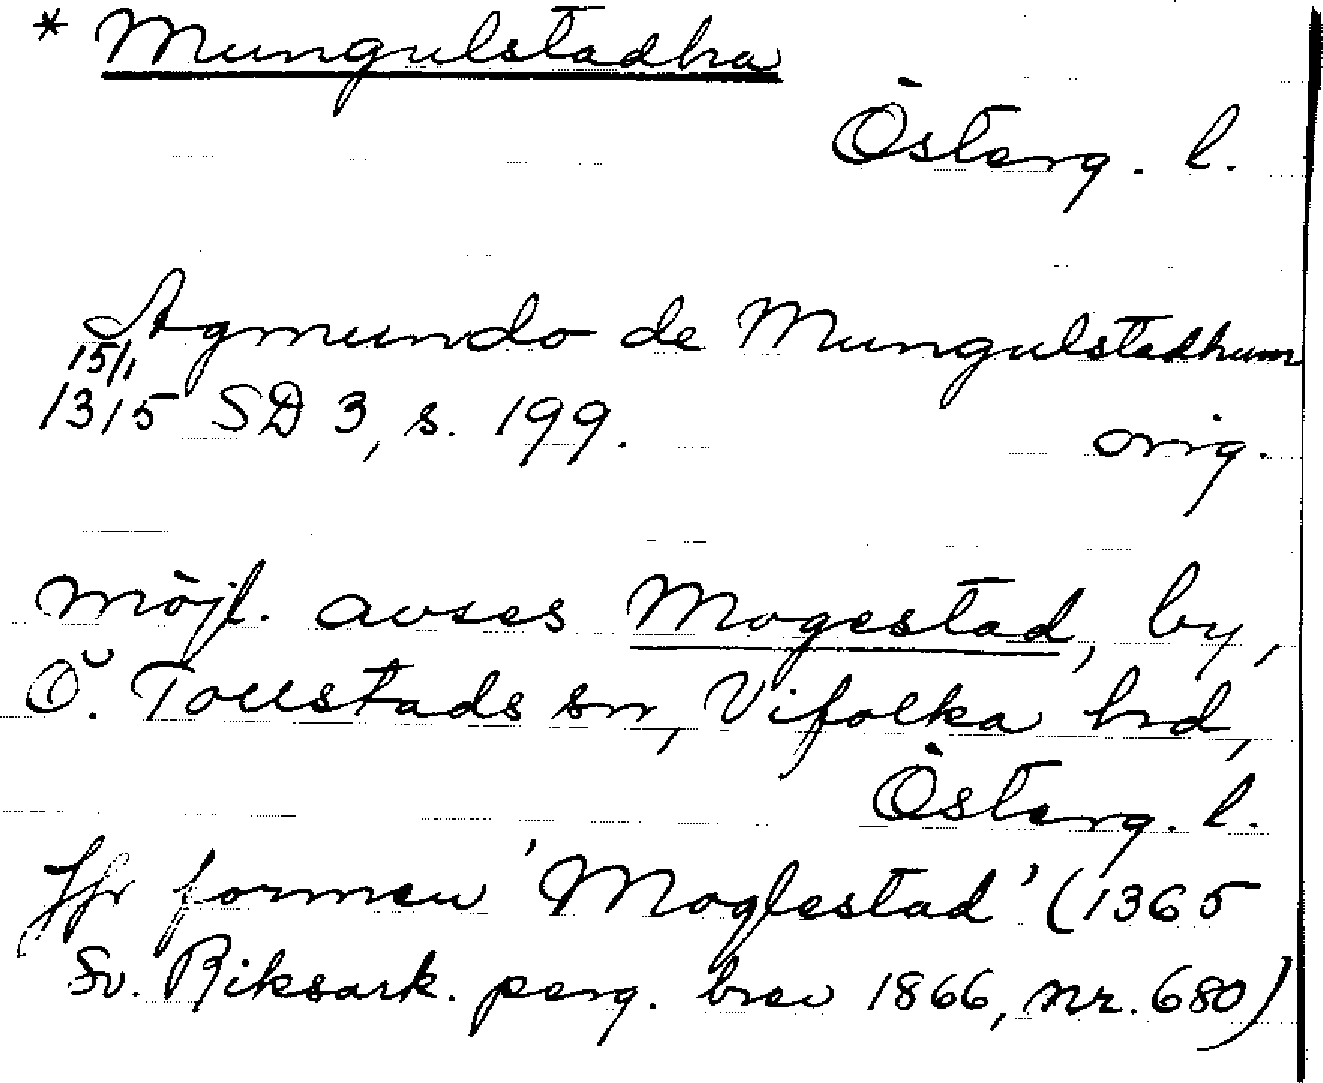 * Mungulstadha
Österg. l.
Agmundo de Mungulstadhum
15/1
1315 SD 3, s. 199. orig.
Möjl. avses Mogestad, by,
Ö. Tollstads sn, Vifolka hrd,
Österg. l.
Jfr formen 'Moglestad' (1365
Sv. Riksark. perg. brev 1866, nr. 680)